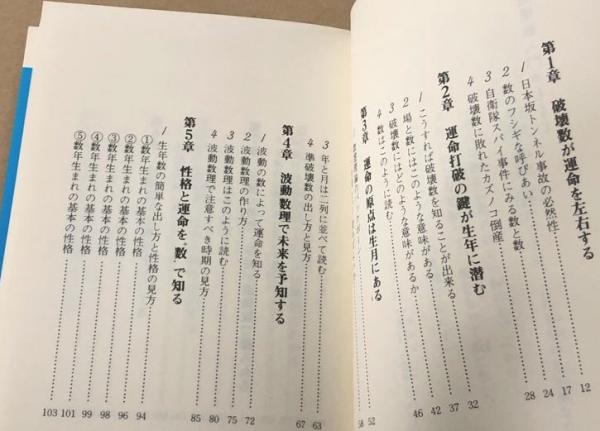 第1章 破壊数が運命を左右する
1 日本坂トンネル事故の必然性……12
2 数のフシギな呼びあい……17
3 自衛隊スパイ事件にみる数と数……24
4 破壊数に敗れたカズノコ倒産……28
第2章 運命打破の鍵が生年に潜む
1 こうすれば破壊数を知ることが出来る……32
2 場と数にはこのような意味がある……37
3 破壊数にはどのような意味があるか……42
4 数はこのように読む……46
第3章 運命の原点は生月にある
……52
……58
3 年と月は二列に並べて読む……63
4 準破壊数の出し方と見方……67
第4章 波動数理で未来を予知する
1 波動の数によって運命を知る……72
2 波動数理の作り方……75
3 波動数理はこのように読む……80
4 波動数理で注意すべき時期の見方……85
第5章 性格と運命を〝数〟で知る
1 生年数の簡単な出し方と性格の見方……94
①数年生まれの基本の性格……96
②数年生まれの基本の性格……98
③数年生まれの基本の性格……99
④数年生まれの基本の性格……101
⑤数年生まれの基本の性格……103